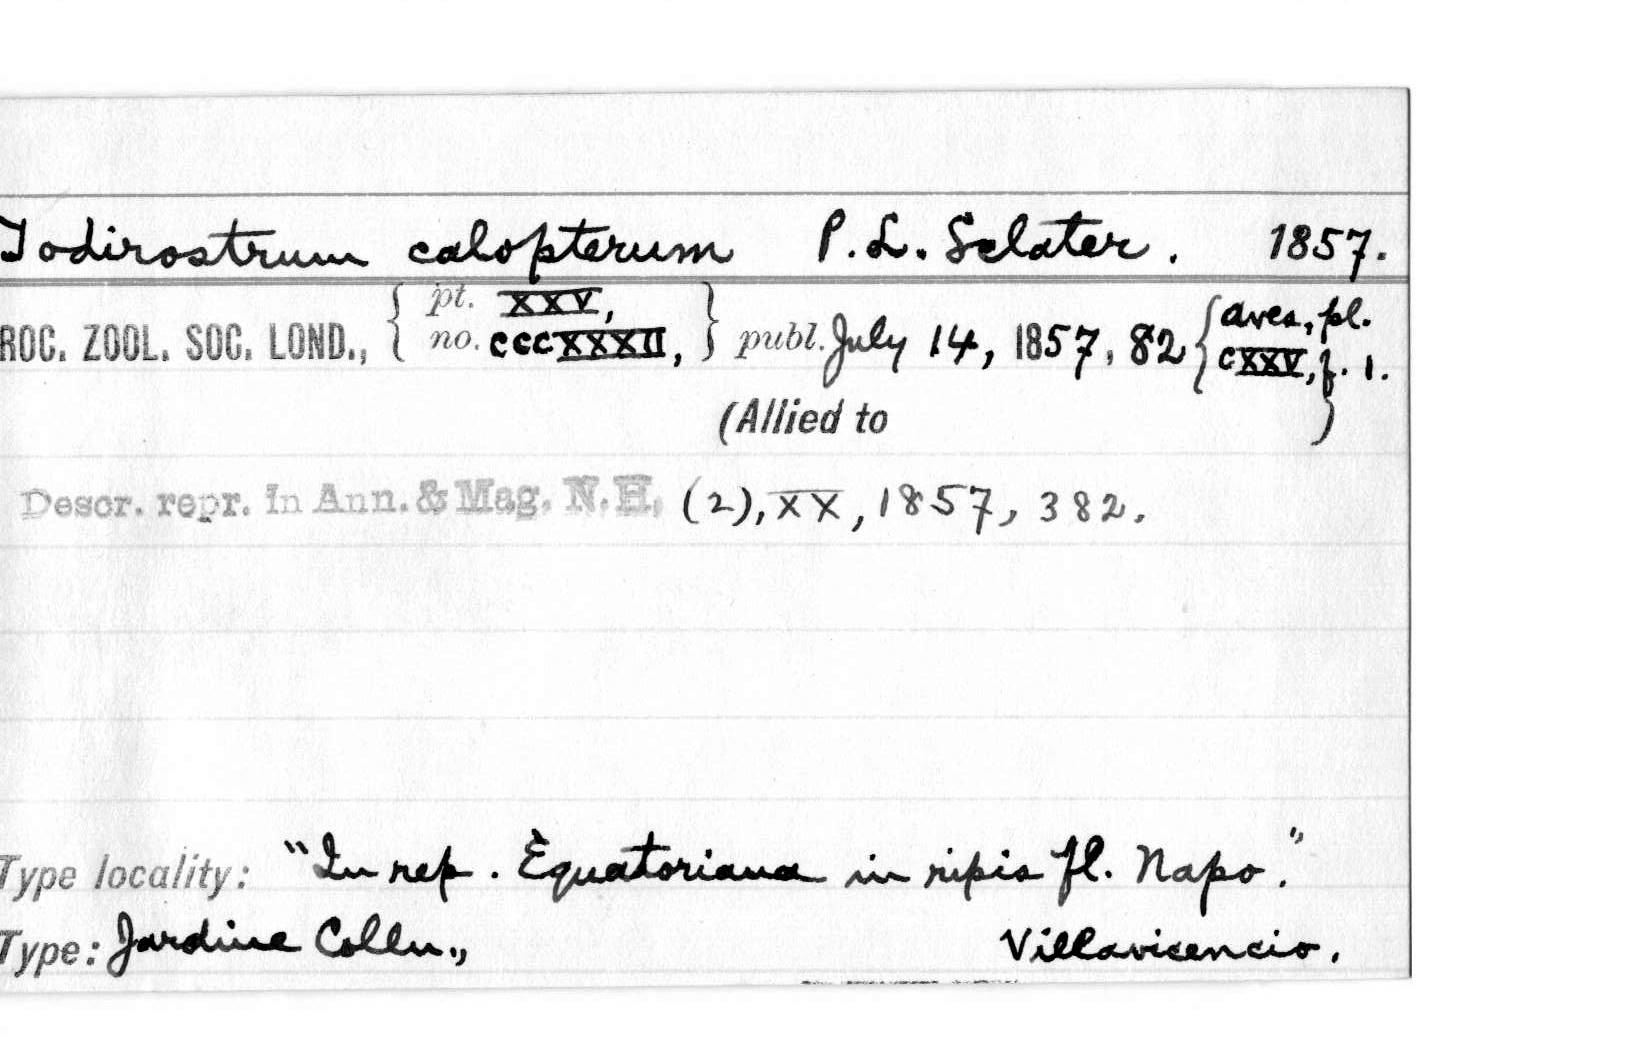 Todirostrum calopterum P. L. Sclater. 1857.
ROC. ZOOL. SOC. LOND., { pt. XXV, no. CCCXXXII, } publ. July 14, 1857, 82 { Aves, pl. CXXV, f. 1.
(Allied to )
Descr. repr. in Ann. & Mag. N.H. (2), XX, 1857, 382.
Type locality: "In rep. Equatoriana in ripis fl. Napo."
Type: Jardine Colln., Villavicencio.